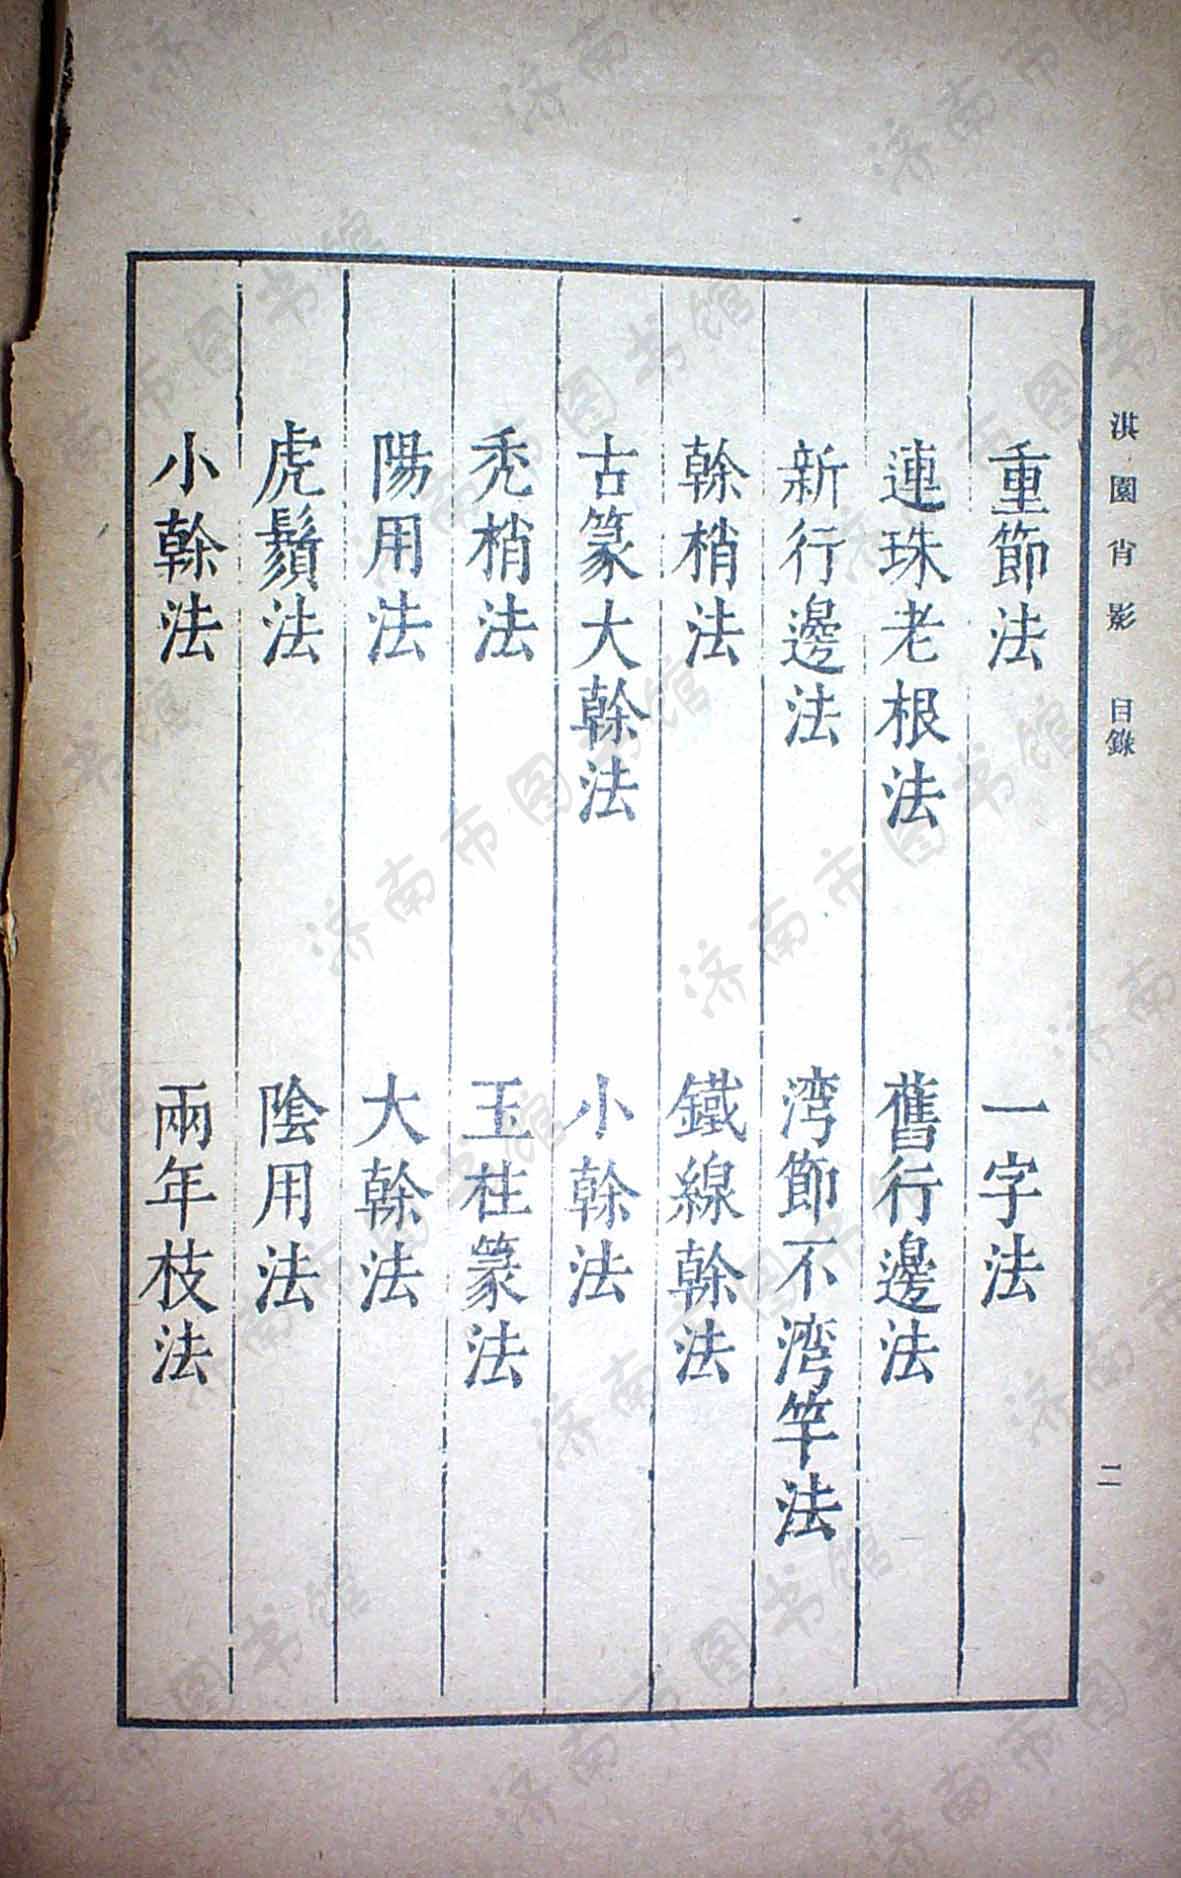 淇園肖影 目錄 二
重節法 一字法
連珠老根法 舊行邊法
新行邊法 湾節不湾竿法
榦梢法 鐵線榦法
古篆大榦法 小榦法
秃梢法 玉柱篆法
陽用法 大榦法
虎鬚法 陰用法
小榦法 兩年枝法
济南市图书馆